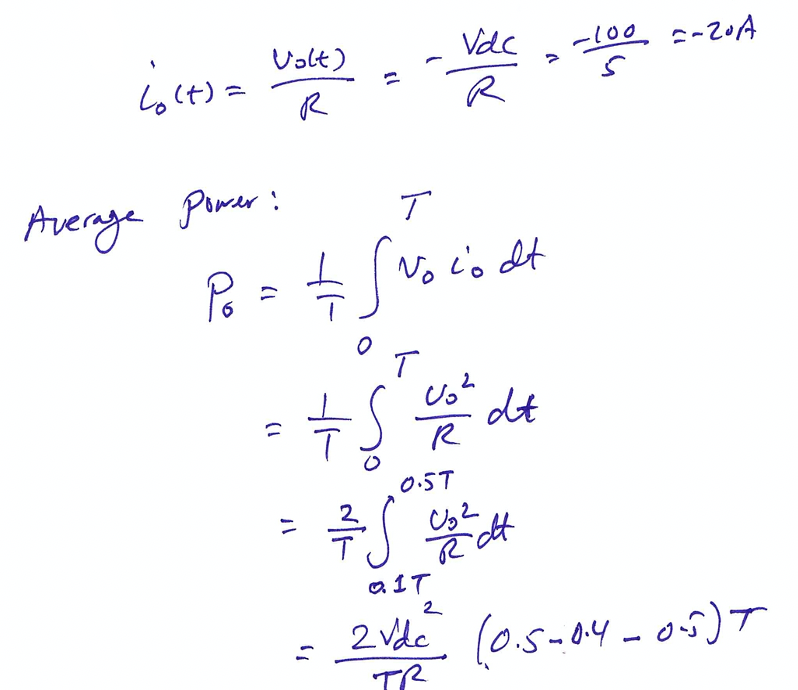 i₀(t) = V₀(t)/R = - Vdc/R = -100/5 = -20A
Average Power:
P₀ = 1/T ∫₀ᵀ v₀ i₀ dt
= 1/T ∫₀ᵀ v₀²/R dt
= 2/T ∫_{0.1T}^{0.5T} v₀²/R dt
= 2Vdc²/TR (0.5-0.4 - 0.5)T